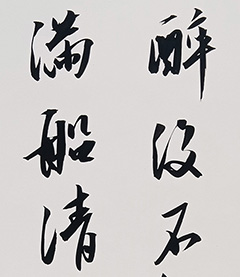 醉後不
滿船清